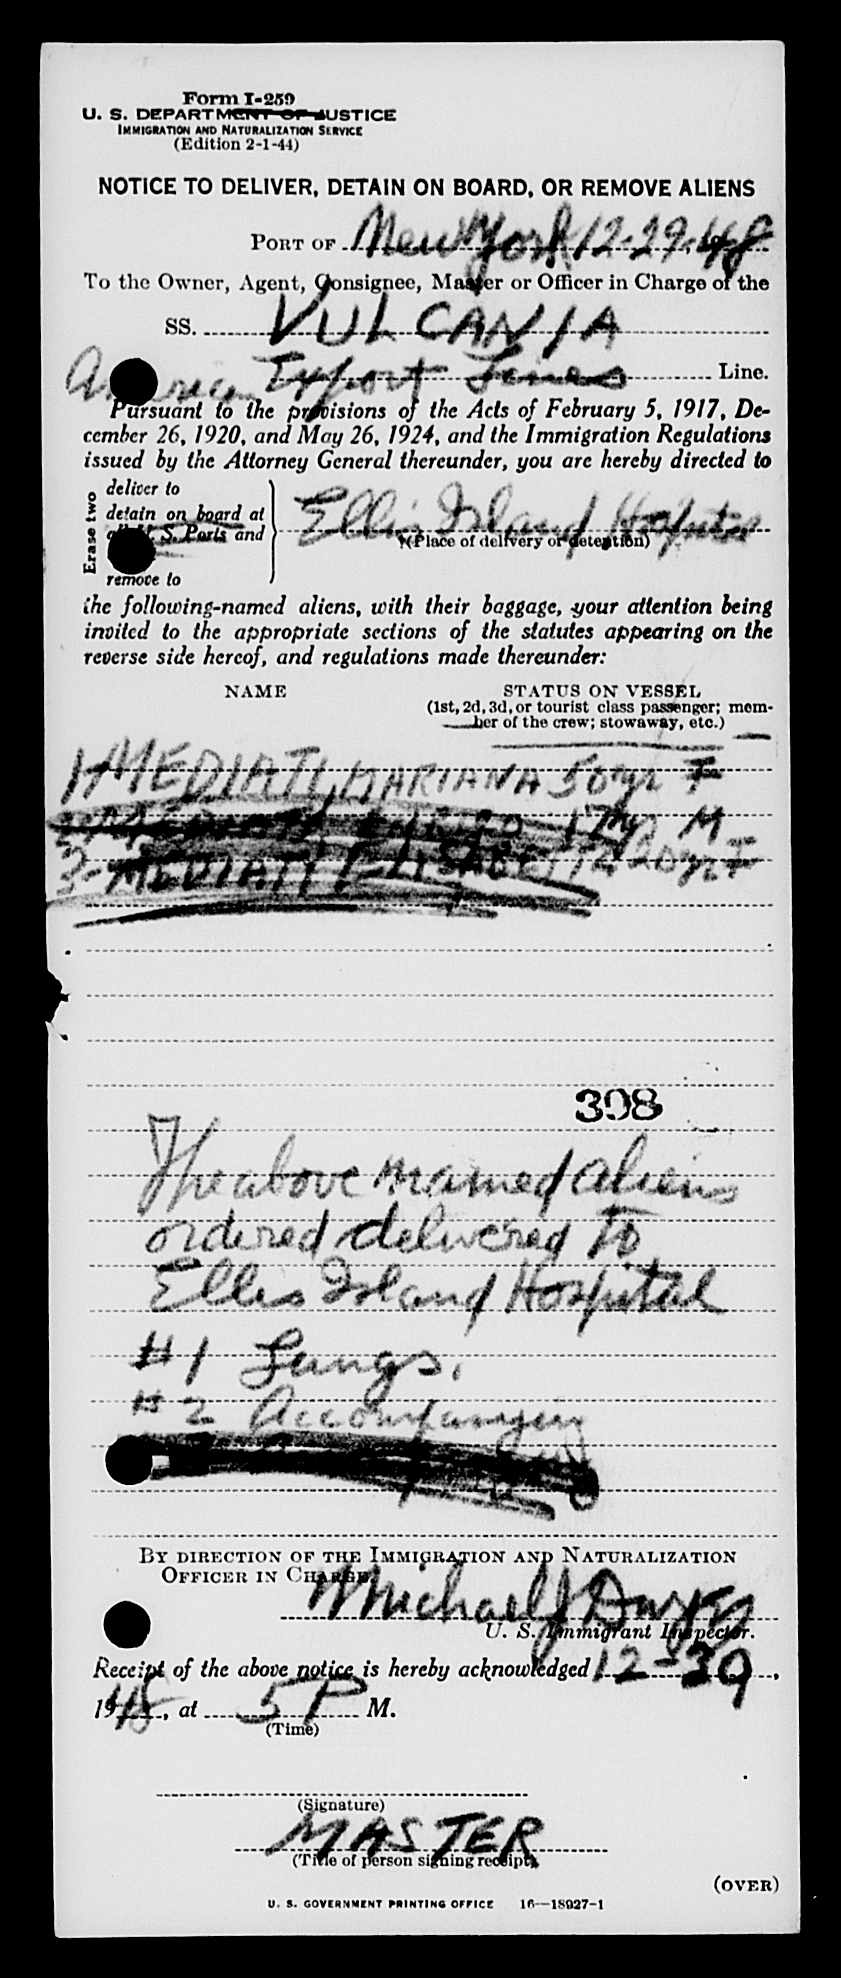 Form I-259
U. S. DEPARTMENT OF JUSTICE
IMMIGRATION AND NATURALIZATION SERVICE
(Edition 2-1-44)
NOTICE TO DELIVER, DETAIN ON BOARD, OR REMOVE ALIENS
PORT OF New York 12-29-48
To the Owner, Agent, Consignee, Master or Officer in Charge of the
SS. VULCANIA
American Export Lines Line.
Pursuant to the provisions of the Acts of February 5, 1917, De-
cember 26, 1920, and May 26, 1924, and the Immigration Regulations
issued by the Attorney General thereunder, you are hereby directed to
Erase two
deliver to
detain on board at
all U. S. Ports and
remove to
Ellis Island Hospital
(Place of delivery or detention)
the following-named aliens, with their baggage, your attention being
invited to the appropriate sections of the statutes appearing on the
reverse side hereof, and regulations made thereunder:
NAME STATUS ON VESSEL
(1st, 2d, 3d, or tourist class passenger; mem-
ber of the crew; stowaway, etc.)
1- MEDIATI, MARIANA 50 yr F
MEDIATI 17 yr M
3- MEDIATI ELISABETTA 20 yr F
398
The above named aliens
ordered delivered to
Ellis Island Hospital
#1 Lungs.
#2 Accompanying
BY DIRECTION OF THE IMMIGRATION AND NATURALIZATION
OFFICER IN CHARGE.
Michael J Dwyer
U. S. Immigrant Inspector.
Receipt of the above notice is hereby acknowledged 12-29,
1948, at 5 P M.
(Time)
(Signature)
MASTER
(Title of person signing receipt)
(OVER)
U. S. GOVERNMENT PRINTING OFFICE 16—18927-1